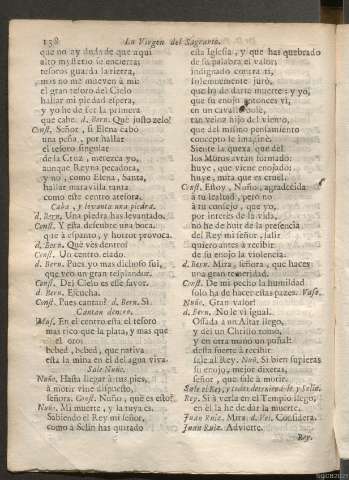 138
La Virgen del Sagrario.
que no ay duda de que aqui
alto mysterio se encierra;
tesoros guarda la tierra,
nos no me mueven à mi
el gran tesoro del Cielo
hallar mi piedad espera,
y yo he de ser la primera
que cabe. d. Bern. Què justo zelo!
Const. Señor, si Elena cabò
una peña, por hallar
el tesoro singular
de la Cruz, merezca yo,
aunque Reyna pecadora,
y no, como Elena, Santa,
hallar maravilla tanta
como este centro atesora.
Caba, y levanta una piedra.
d. Bern. Una piedra has levantado.
Const. Y esta descubre una boca,
que à espanto, y horror provoca.
d. Bern. Què ves dentro?
Const. Un centro elado.
d. Bern. Pues yo mas dichoso fui,
que veo un gran resplandor.
Const. Del Cielo es esse favor.
d. Bern. Escucha.
Const. Pues cantan? d. Bern. Si
Cantan dentro.
Mus. En el centro està el tesoro
mas rico que la plata, y mas que
el oro:
bebed, bebed, que nativa
està la mina en el del agua viva.
Sale Nuño.
Nuño. Hasta llegar à tus pies,
à morir vine dispuesto,
señora. Const. Nuño, què es esto?
Nuño. Mi muerte, y la tuya es.
Sabiendo el Rey mi señor,
como à Selin has quitado
esta Iglesia, y que has quebrado
de su palabra el valor;
indignado contra ti,
solemnemente jurò,
que ha de darte muerte; y yo,
que su enojo entonces vi,
en un cavallo
tan veloz hijo del viento,
que del mismo pensamiento
concepto le imaginè.
Siente la quexa que del
los Moros avràn formado:
huye, que viene enojado:
huye, mira que es cruel.
Const. Estoy, Nuño, agradecida
à tu lealtad, pero no
à tu consejo, que yo,
por interès de la vida,
no he de huir de la presencia
del Rey mi señor, salir
quiero antes à recibir
de su enojo la violencia.
d. Bern. Mira, señora, que haces
una gran temeridad.
Const. De mi pecho la humildad
solo ha de hacer estas pazes. Vase.
Nuño. Gran valor!
d. Bern. No le vi igual.
Ossada à un Altar llego,
y de un Christo tomò,
y en otra mano un puñal:
desta suerte à recibir
sale al Rey. Nuñ. Si bien supieras
su enojo, mejor dixeras,
señor, que sale à morir.
Sale el Rey, y todos deteniendole, y Selin.
Rey. Si à verla en el Templo llego,
en èl la he de dar la muerte.
Juan Ruiz. Mira. d. Vel. Considera.
Juan Ruiz. Advierte.
Rey.